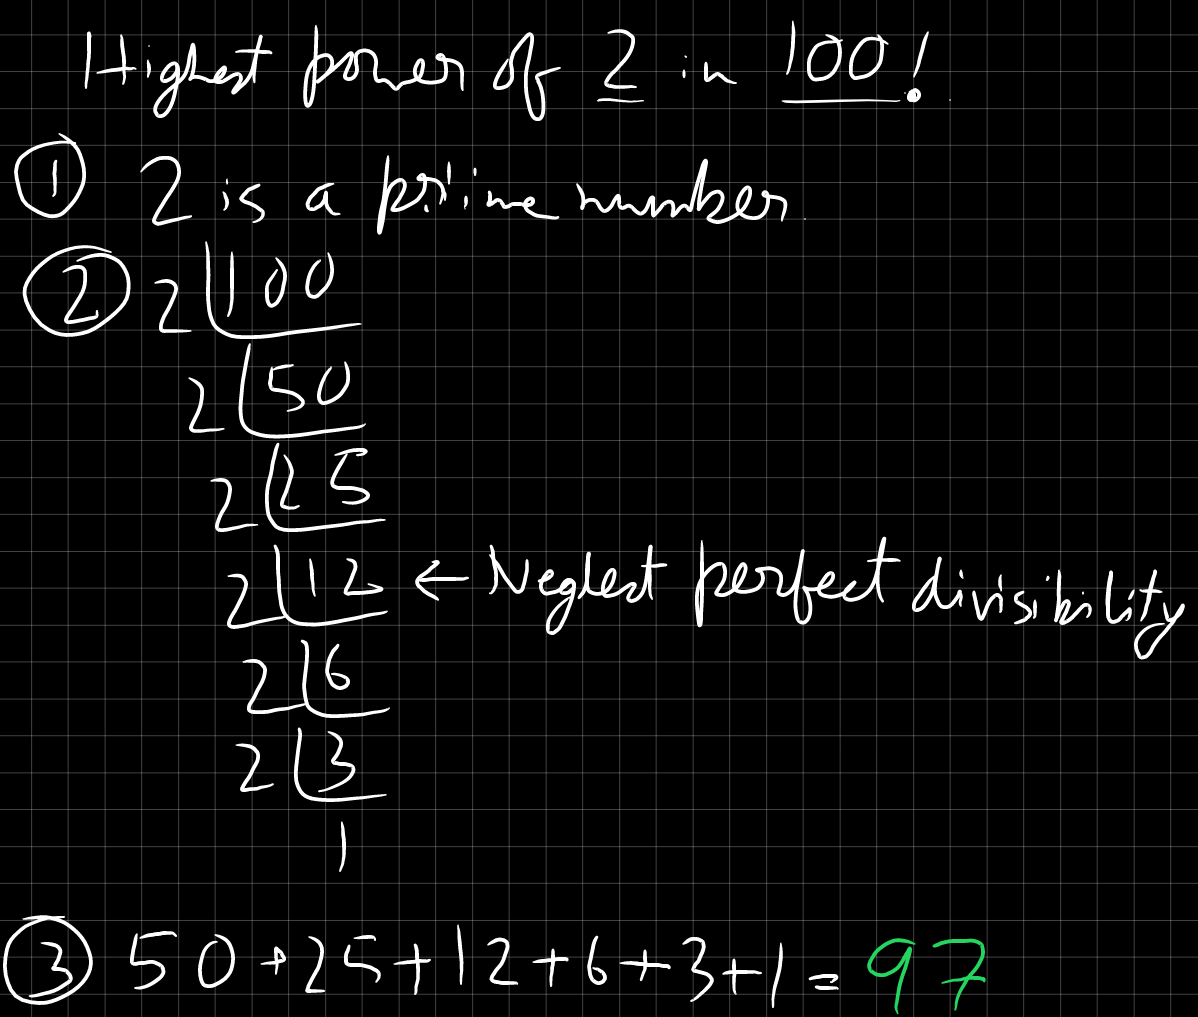 Highest power of 2 in 100!
① 2 is a prime number
② 2 100
2 50
2 25
2 12 ← Neglect perfect divisibility
2 6
2 3
1
③ 50+25+12+6+3+1 = 97